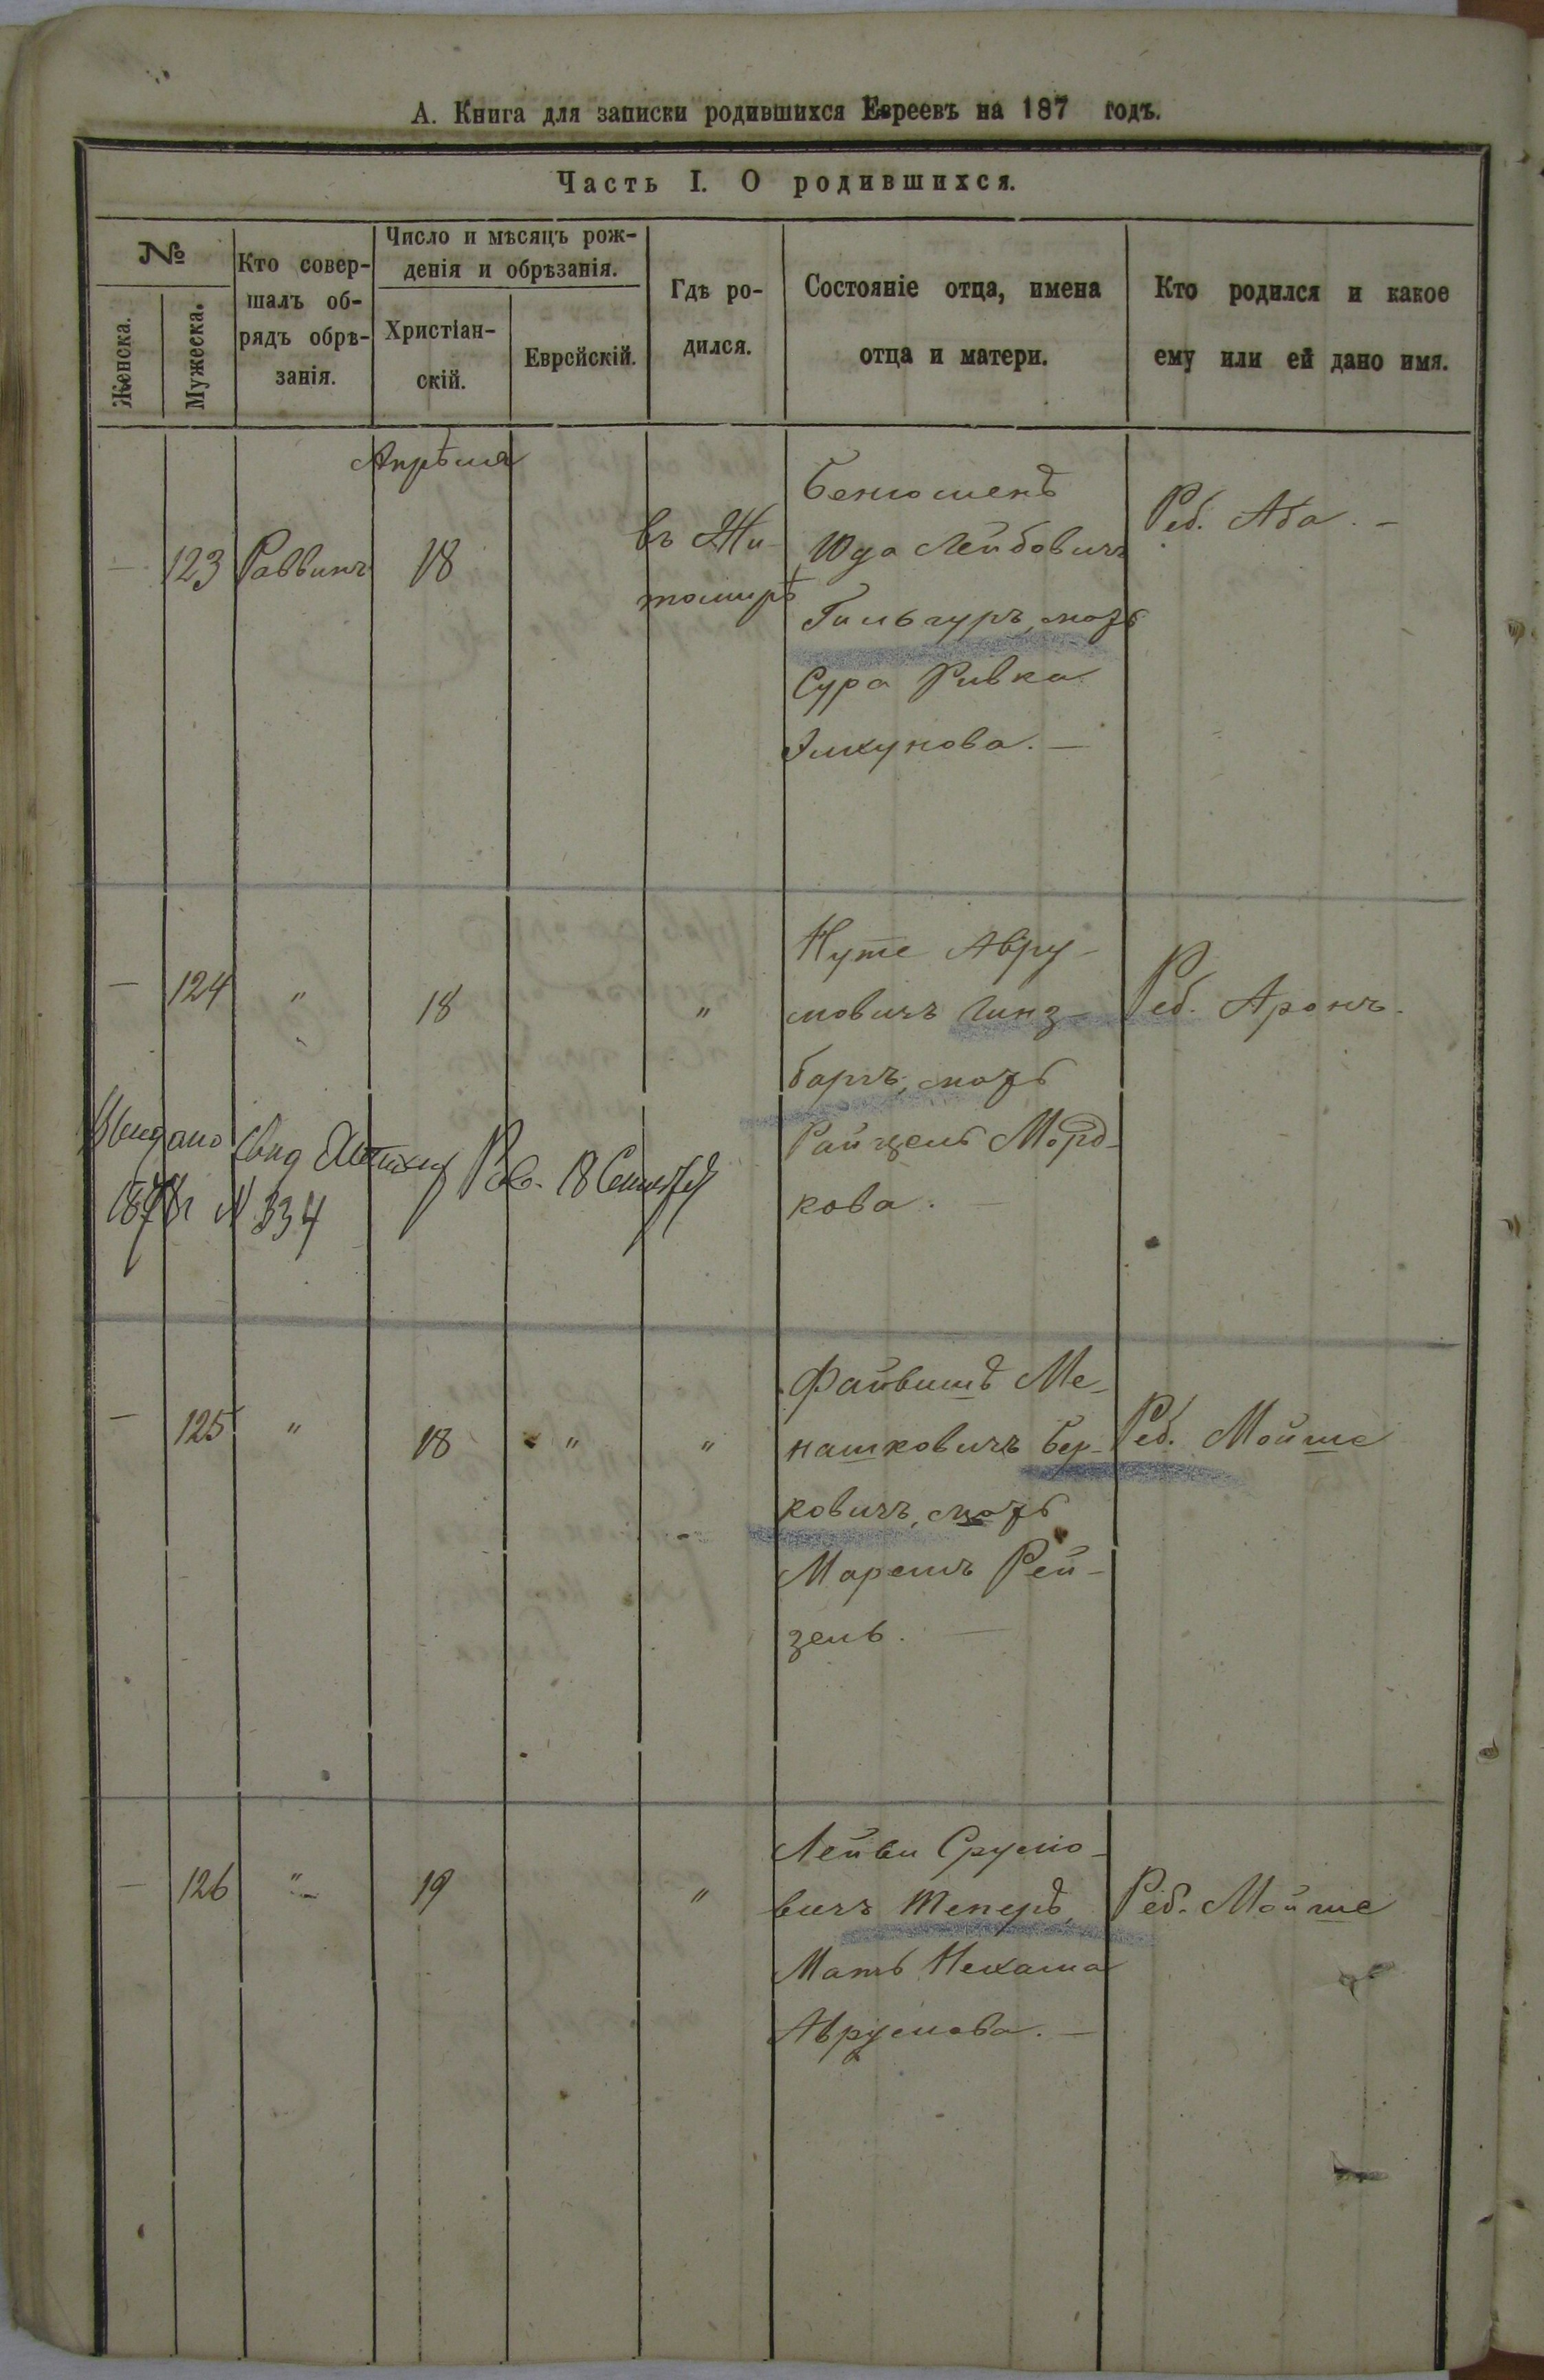 А. Книга для записки родившихся Евреевъ на 187 годъ.
Часть I. О родившихся.
№
Женска.
Мужеска.
Кто совер-
шалъ об-
рядъ обрѣ-
занія.
Число и мѣсяцъ рож-
денія и обрѣзанія.
Христіан-
скій.
Еврейскій.
Гдѣ ро-
дился.
Состояніе отца, имена
отца и матери.
Кто родился и какое
ему или ей дано имя.
Апрѣля
— 123 Раввинъ 18
въ Жи-
томирѣ
Юда Лейбовичъ
мать
Сура Ривка
Реб. Аба. —
— 124 " 18 "
Нуте Авру-
мовичъ Гинз-
баргъ, мать
Райцель Морд-
кова. —
Реб. Аронъ.
Выдано Свид
187 г № 334
— 125 " 18 " "
Файвишъ Ме-
нашковичъ Бер-
ковичъ, мать
Маремъ Рей-
зель. —
Реб. Мойше
— 126 " 19 "
Лейви Срумо-
вичъ Теперъ,
Мать Нехама
Аврумова. —
Реб. Мойше